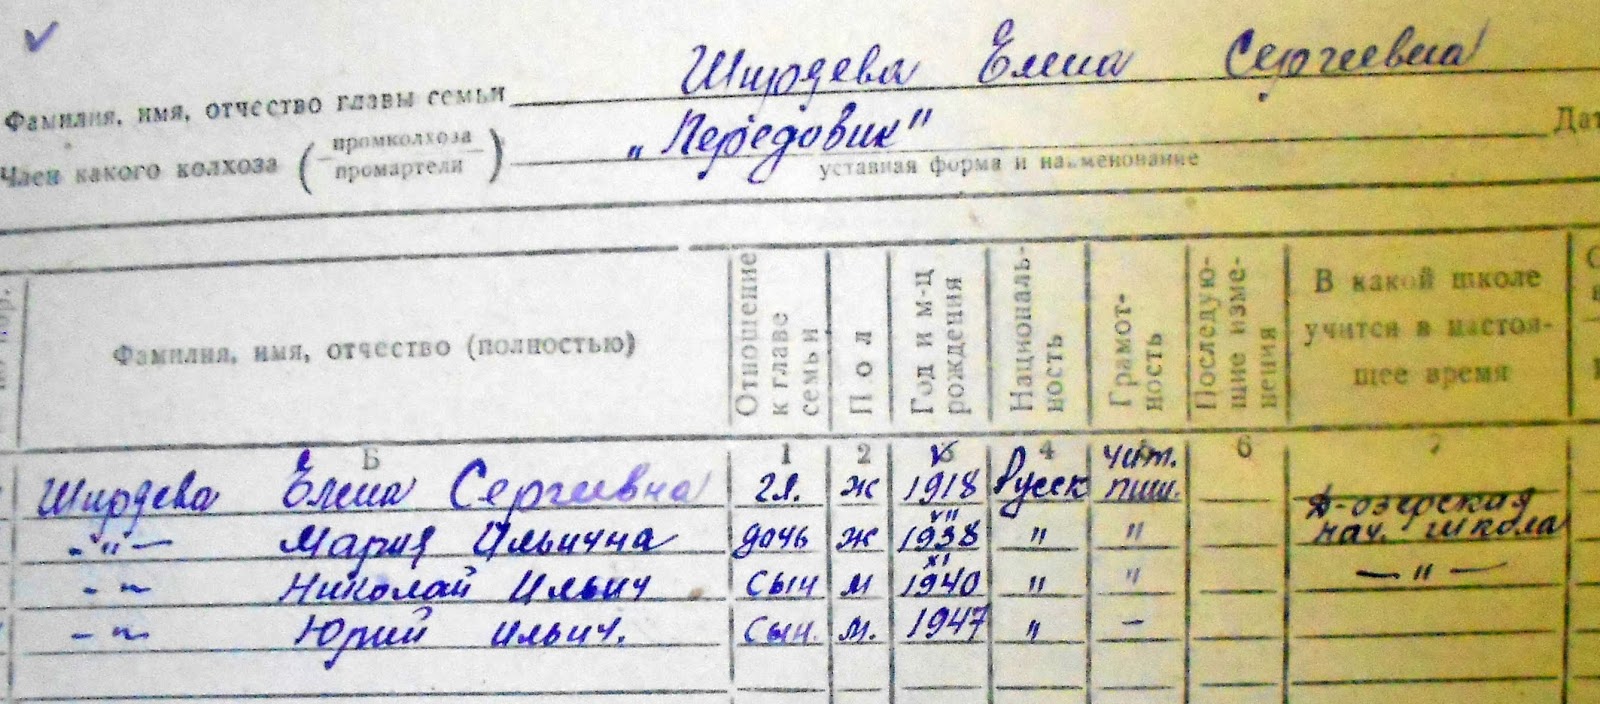 Ширдева Елена Сергеевна
Фамилия, имя, отчество главы семьи
„Передовик"
Член какого колхоза (промколхоза промартели)
Дат
уставная форма и наименование
Фамилия, имя, отчество (полностью)
Отношение к главе семьи
Пол
Год и м-ц рождения
Националь-ность
Грамот-ность
Последую-щие изме-нения
В какой школе учится в настоя-щее время
Б 1 2 3 4 5 6 7
Ширдева Елена Сергеевна гл. ж V 1918 Русск чит. пиш.
-"- Мария Ильична дочь ж VII 1938 " " Д-озерская нач. школа
-"- Николай Ильич сын м XI 1940 " " -"-
-"- Юрий Ильич. сын. м. 1947 " -